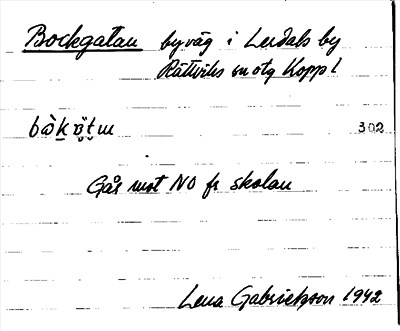 Bockgatan byväg i Lerdals by
Rättviks sn otg Koppl
302
Går mot NO fr skolan
Lena Gabrielsson 1942